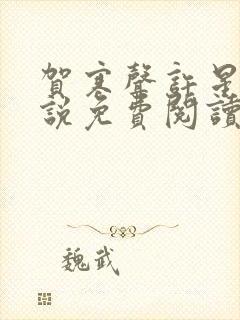 賀寒聲許星
說免費閱讀
魏武